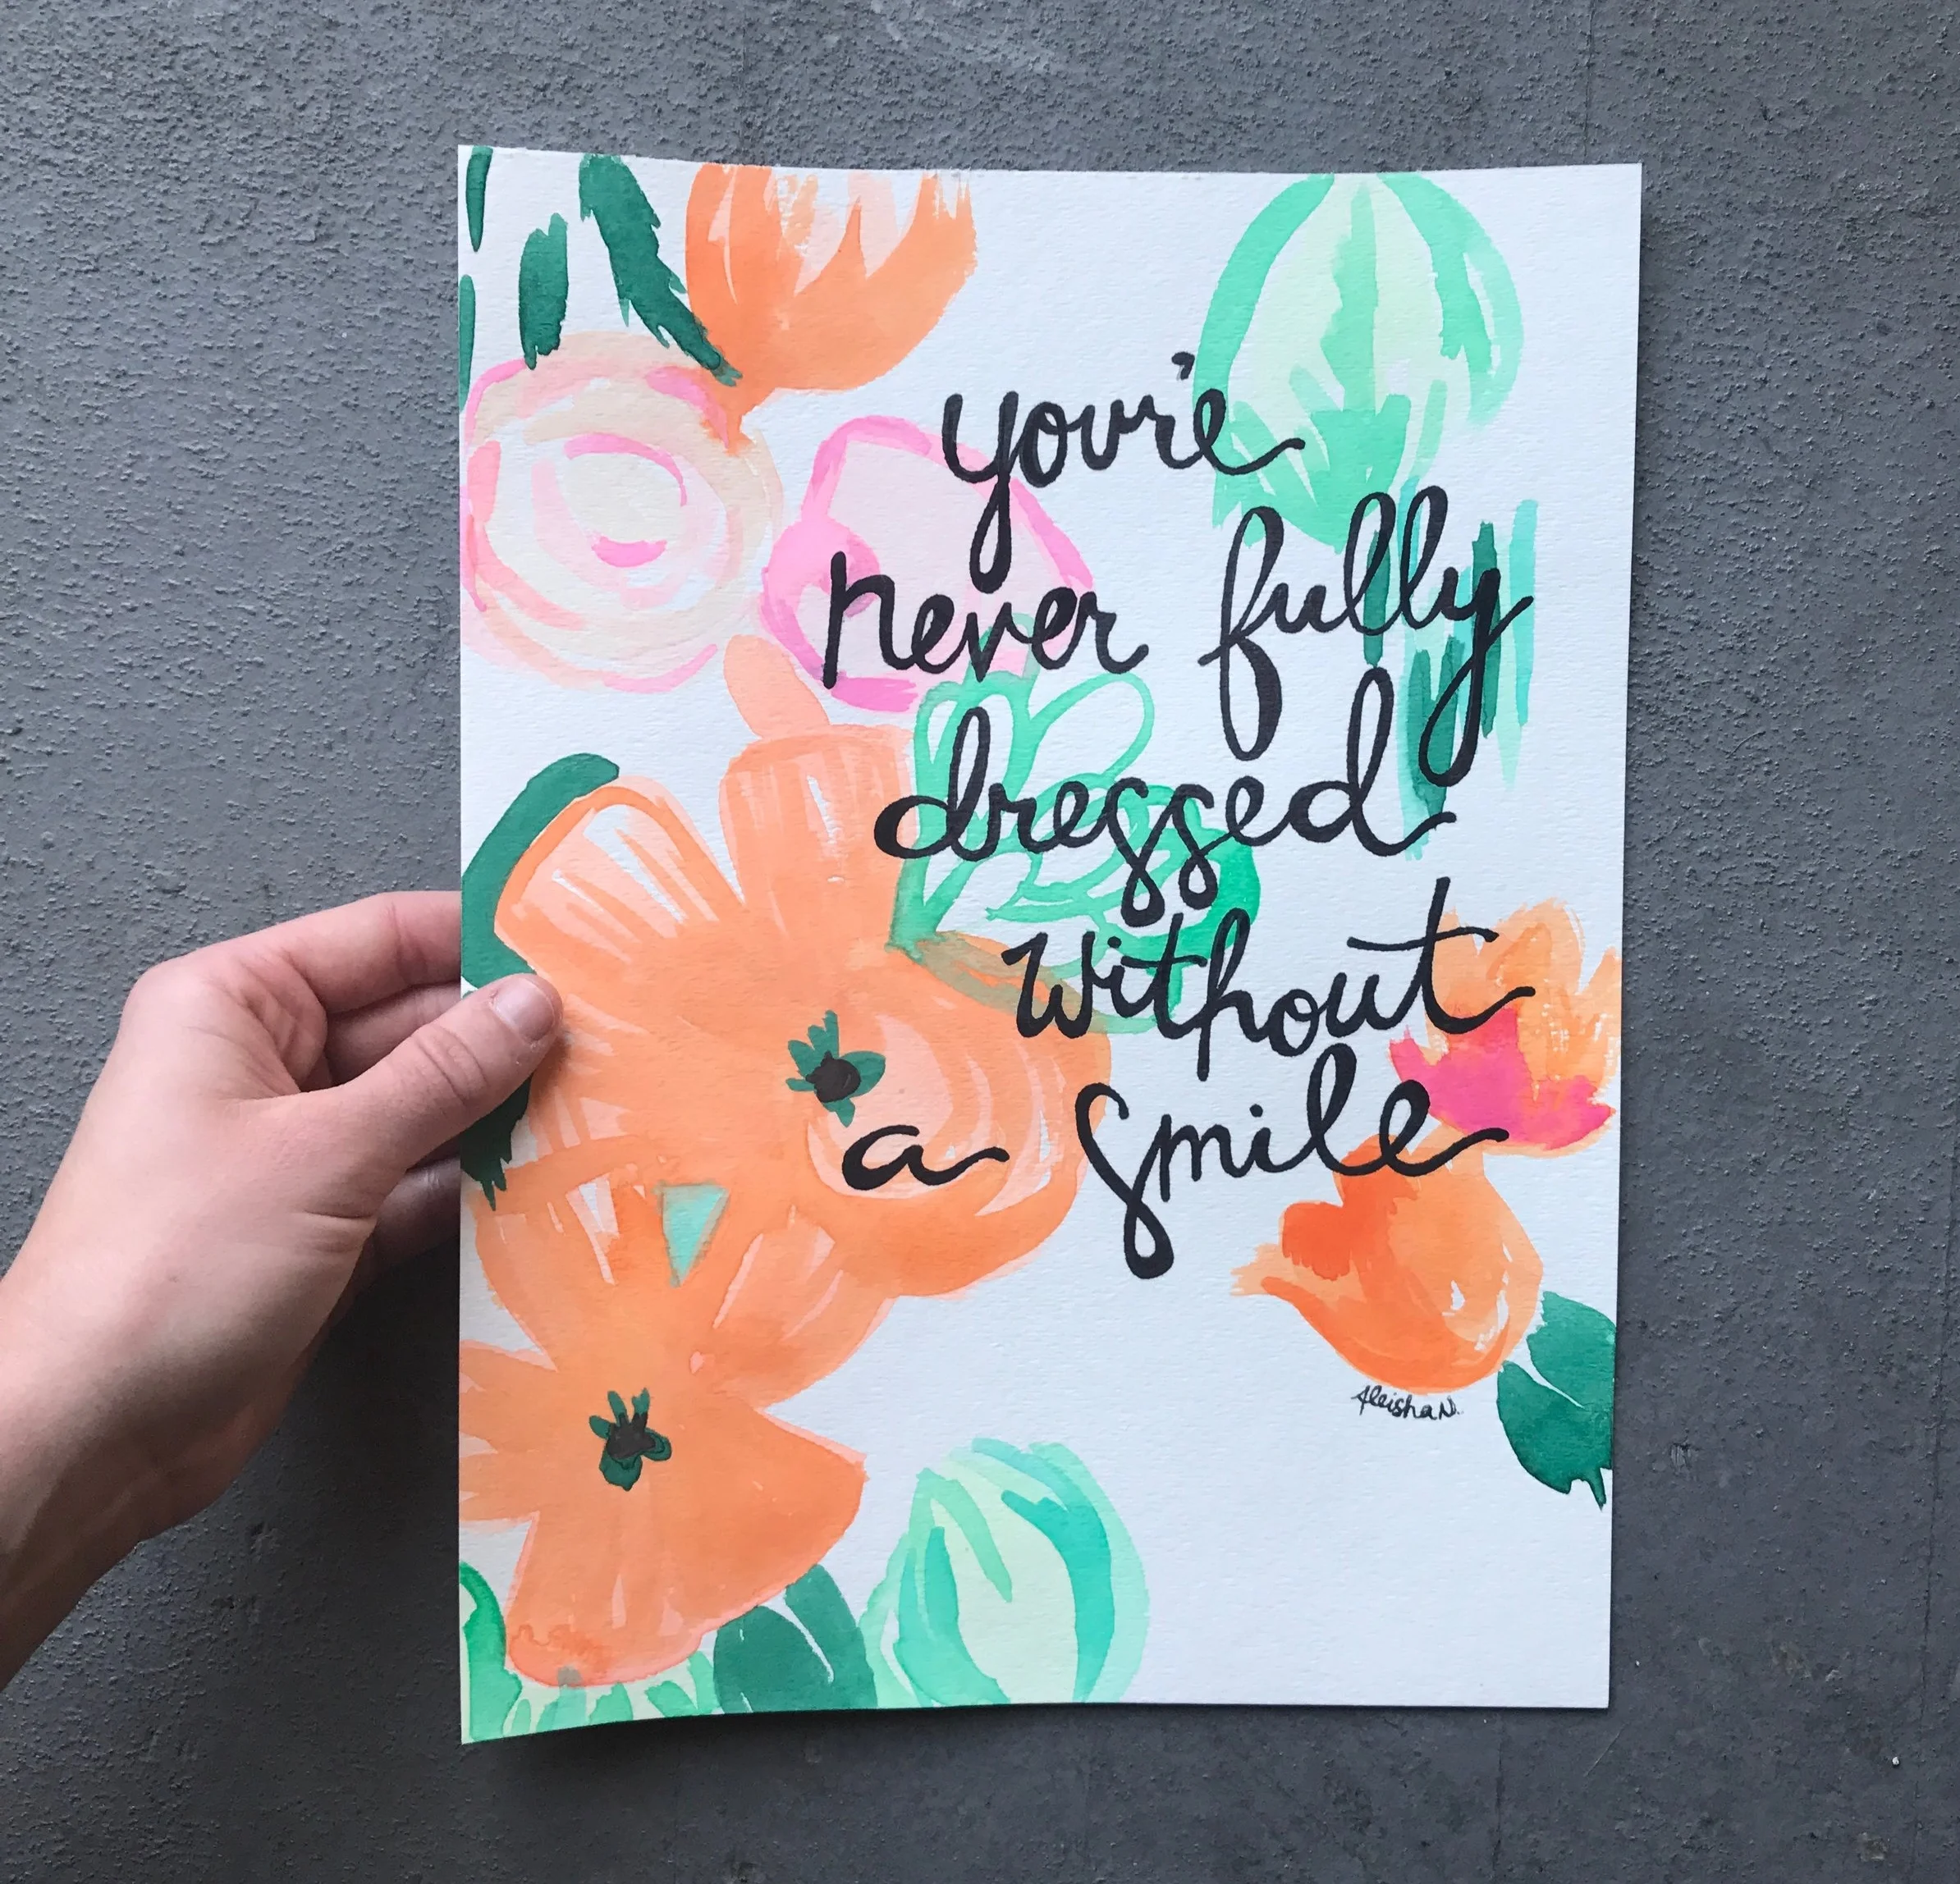 you're
never fully
dressed
without
a smile
Aleisha N.